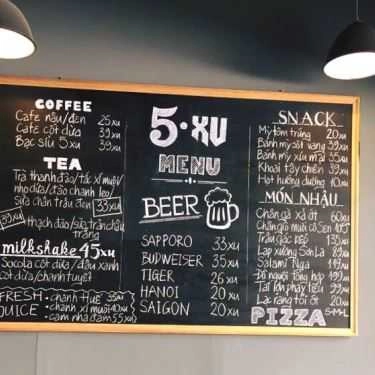 COFFEE
Cafe nâu/đen 25xu
Cafe cốt dừa 39xu
Bạc sỉu 5xu 39xu
TEA
Trà thanh đào/tắc xí muội/
nho dứa/đào chanh leo/
Sữa chân trâu đen 33xu
39xu thạch đào/sữa trân châu
trắng
milkshake 45xu
Socola cốt dừa/đậu xanh
cốt dừa/chanh tuyết
FRESH
JUICE
- chanh Huế 35xu
- chanh xí muội 40xu
- cam nha đam 55xu
5·XU
MENU
BEER
SAPPORO 33xu
BUDWEISER 35xu
TIGER 26xu
HANOI 20xu
SAIGON 20xu
SNACK
Mỳ tôm trứng 20xu
Bánh mỳ sốt vang 39xu
Bánh mỳ xíu mại 35xu
Khoai tây chiên 39xu
Hạt hướng dương 10xu
MÓN NHẬU
Chân gà xả ớt 60xu
Trâu gác bếp 135xu
Lạp xưởng Sơn La
Salami Nga
Đồ nguội tổng hợp
Tai lợn pháy tiêu 99xu
Lạc rang tỏi ớt 20xu
PIZZA S-M-L